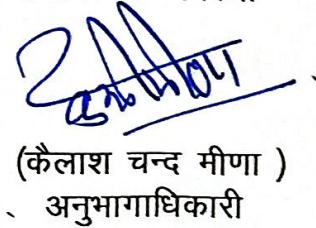 (कैलाश चन्द मीणा )
अनुभागाधिकारी